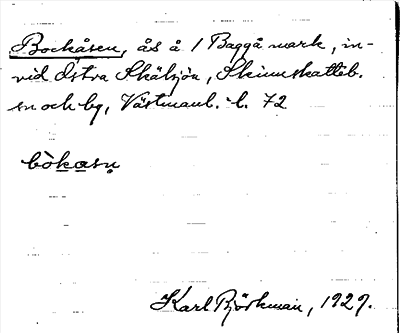 Bockåsen, ås å 1 Baggå mark, in-
vid Östra Skälsjön, Skinnskatteb.
sn och bg, Västmanl. l. 72
bòkasn
Karl Björkman, 1929.